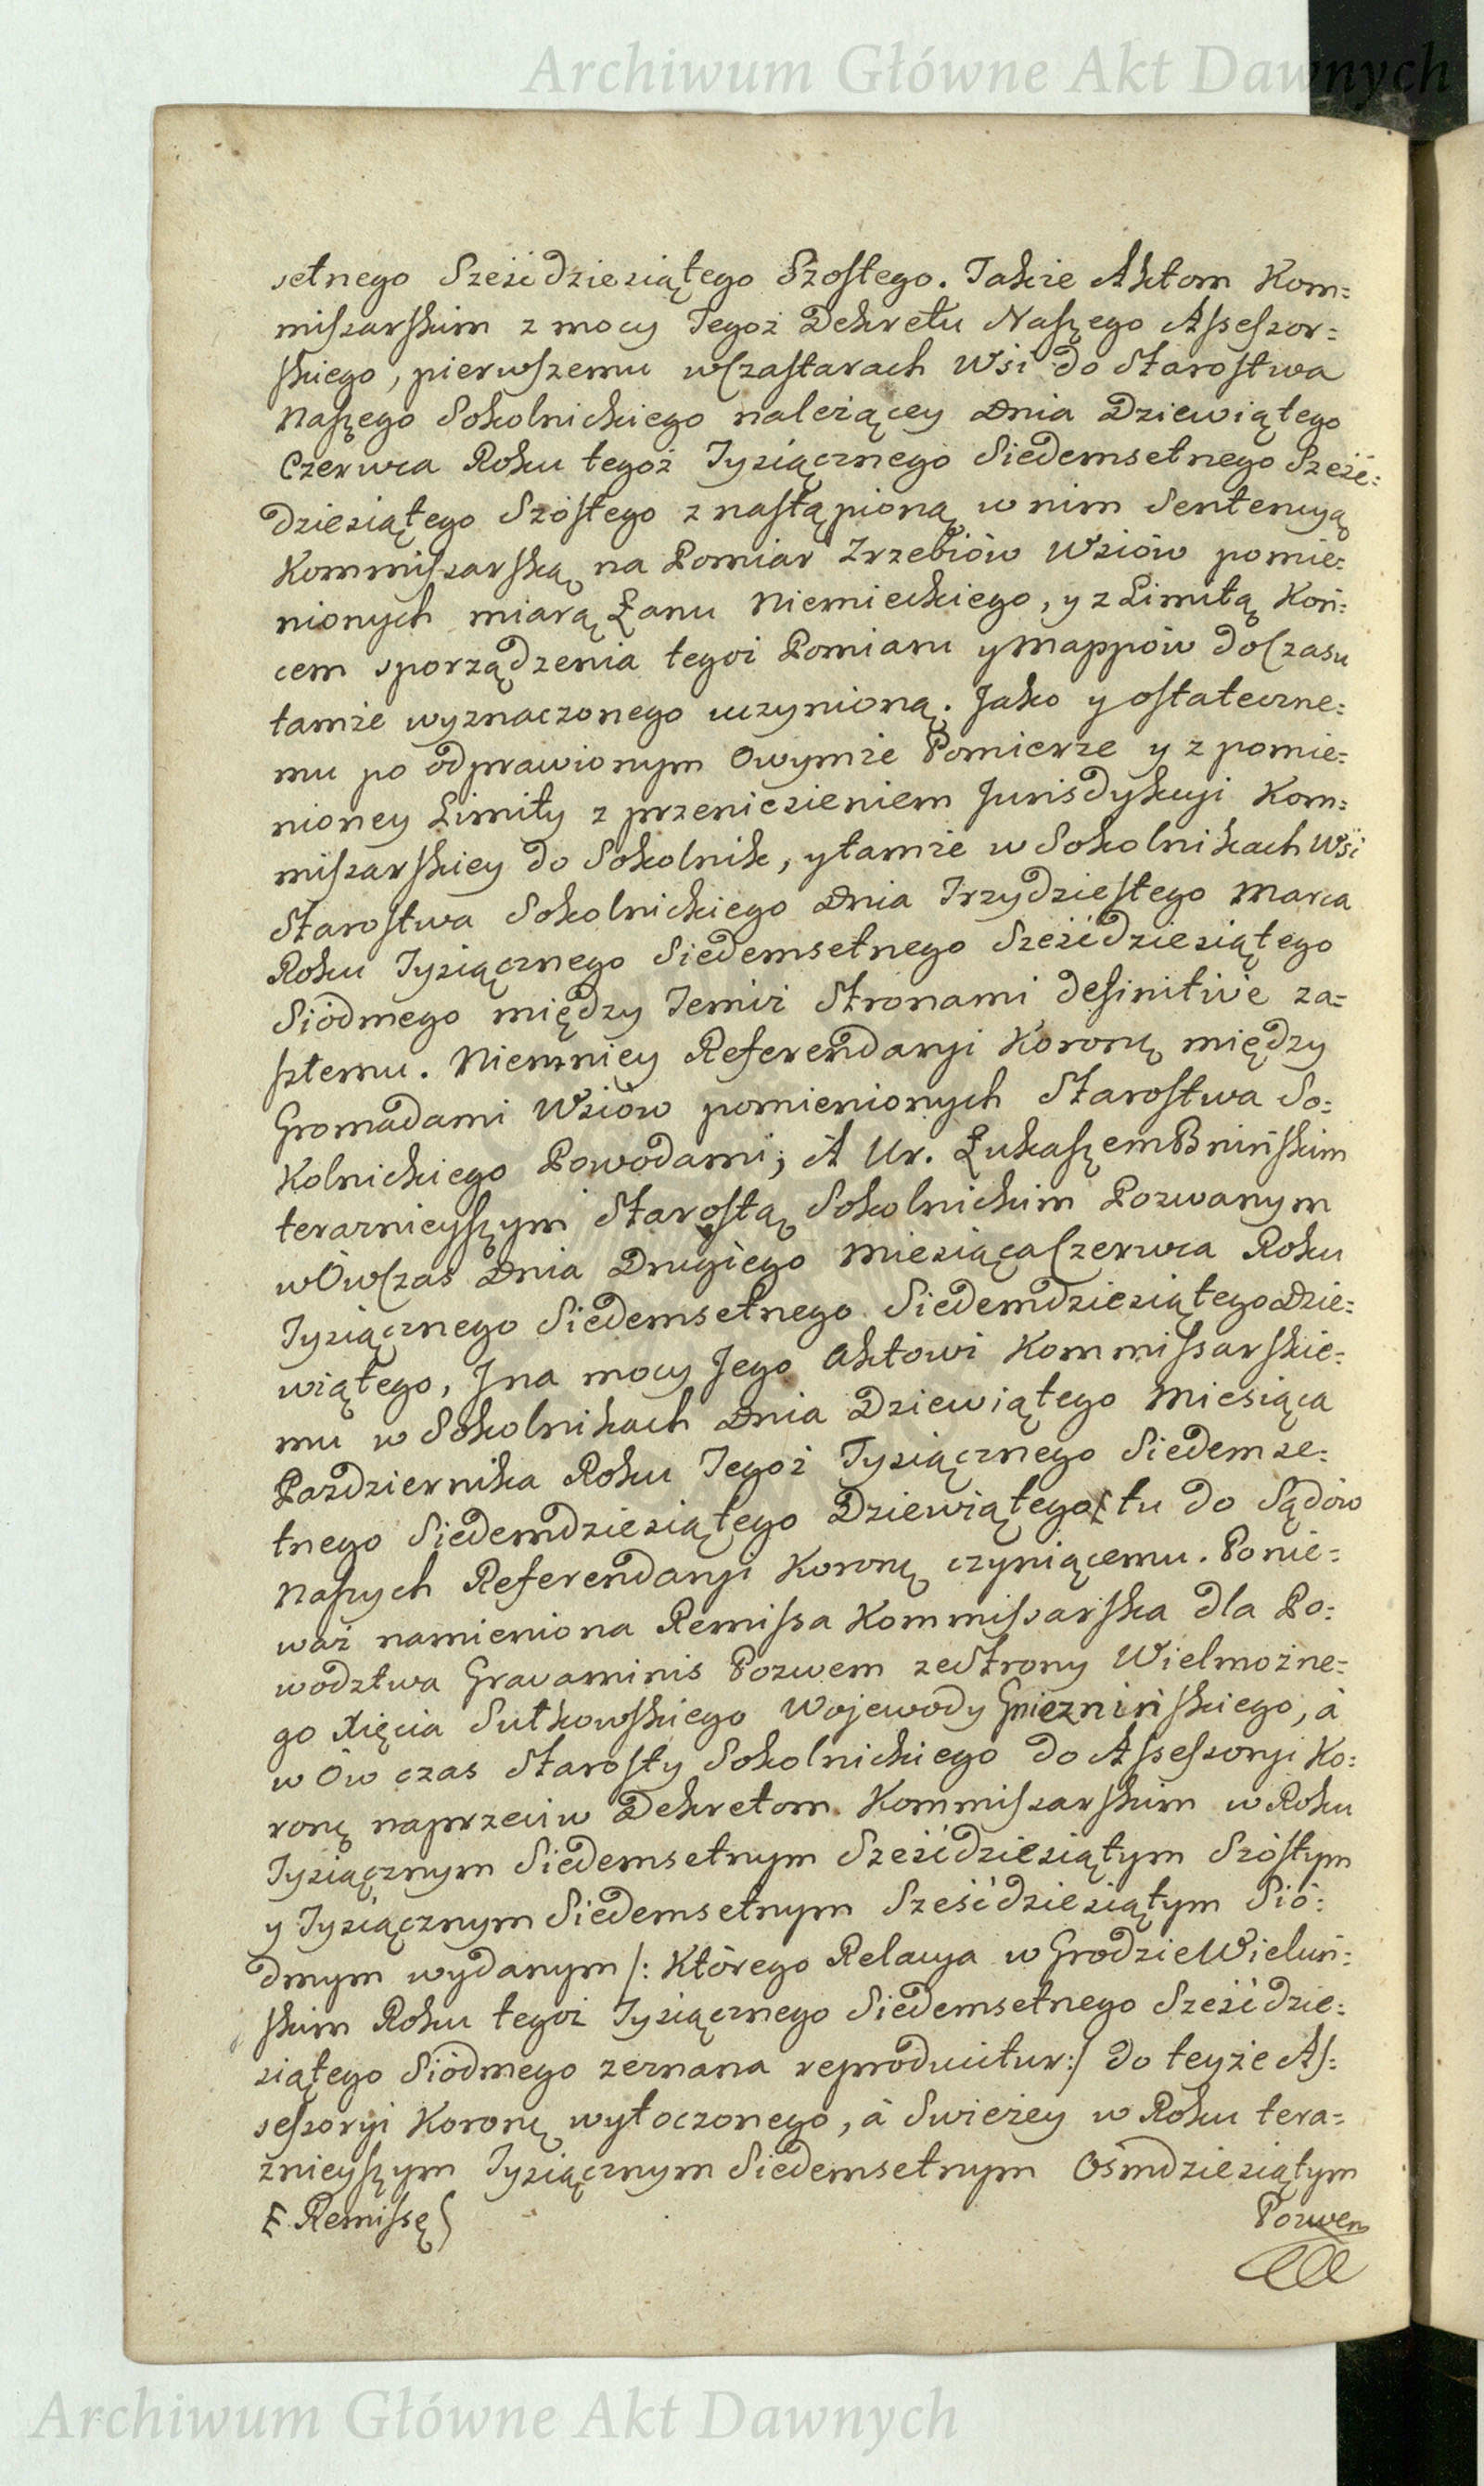 Archiwum Główne Akt Dawnych
setnego Sześćdziesiątego Szostego. Takze Aktom Kom=
missarskim z mocy Tegoż Dekretu Naszego Assessor=
skiego, pierwszemu w Czastarach Wsi do Starostwa
Naszego Sokolnickiego należącey Dnia Dziewiątego
Czerwca Roku tegoż Tysiącznego Siedemsetnego Sześć=
dziesiątego Szóstego z nastąpioną w nim Sentencyą
Kommissarską na Pomiar Zrzebiów Wsiów pomie=
nionych miarą Łanu Niemieckiego, y z Limitą Koń=
cem sporządzenia tegoż Pomiaru y Mappów do Czasu
tamże wyznaczonego uczynioną. Jako y ostateczne=
mu po odprawionym Owymże Pomierze y z pomie=
nioney Limity z przeniesieniem Jurisdykcyi Kom=
missarskiey do Sokolnik, y tamże w Sokolnikach Wsi
Starostwa Sokolnickiego Dnia Trzydziestego Marca
Roku Tysiącznego Siedemsetnego Sześćdziesiątego
Siódmego między Temiż Stronami definitivè za=
szłemu. Niemniey Referendaryi Koronę między
Gromadami Wsiów pomienionych Starostwa So=
kolnickiego Powodami; A Ur. Łukaszem Bnińskim
teraznieyszym Starostą Sokolnickim Pozwanym
w Ów Czas Dnia Drugiego Miesiąca Czerwca Roku
Tysiącznego Siedemsetnego Siedemdziesiątego Dzie=
wiątego, Jna mocy Jego Aktowi Kommissarskie=
mu w Sokolnikach Dnia Dziewiątego Miesiąca
Pazdziernika Roku Tegoż Tysiącznego Siedemse=
tnego Siedemdziesiątego Dziewiątego tu do Sądów
Naszych Referendaryi Koronę czyniącemu. Ponie=
waż namieniona Remissa Kommissarska dla Po=
wodztwa Gravaminis Pozwem ze Strony Wielmożne=
go Xięcia Sułkowskiego Wojewody Gnieznińskiego, à
w Ów czas Starosty Sokolnickiego do Assessoryi Ko=
ronę naprzeciw Dekretom Kommissarskim w Roku
Tysiącznym Siedemsetnym Sześćdziesiątym Szóstym
y Tysiącznym Siedemsetnym Sześćdziesiątym Sió=
dmym wydanym /: Którego Relacya w Grodzie Wieluń=
skim Roku tegoż Tysiącznego Siedemsetnego Sześćdzie=
siątego Siódmego zeznana reproducitur :/ do teyże As=
sessoryi Koronę wytoczonego, à Swieżey w Roku tera=
znieyszym Tysiącznym Siedemsetnym Ośmdziesiątym
Remissę
Pozwem
Archiwum Główne Akt Dawnych